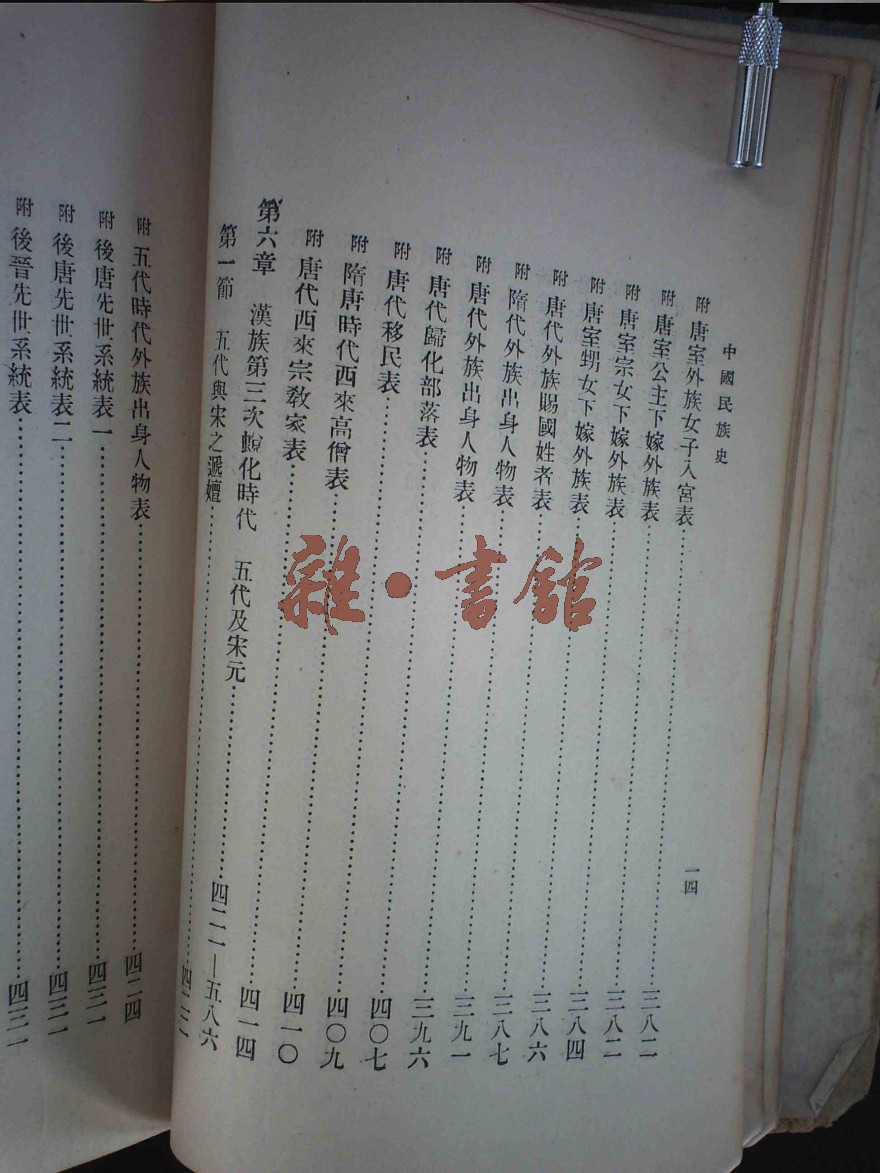 中國民族史
一四
附 唐室外族女子入宮表……三八二
附 唐室公主下嫁外族表……三八二
附 唐室宗女下嫁外族表……三八四
附 唐室甥女下嫁外族表……三八六
附 唐代外族賜國姓者表……三八七
附 隋代外族出身人物表……三九一
附 唐代外族出身人物表……三九六
附 唐代歸化部落表……四〇七
附 唐代移民表……四〇九
附 隋唐時代西來高僧表……四一〇
附 唐代西來宗教家表……四一四
第六章 漢族第三次蛻化時代 五代及宋元……四二一—五八六
第一節 五代與宋之遞嬗……四二二
附 五代時代外族出身人物表……四二四
附 後唐先世系統表一……四三一
附 後唐先世系統表二……四三一
附 後晉先世系統表……四三一
雜·書館